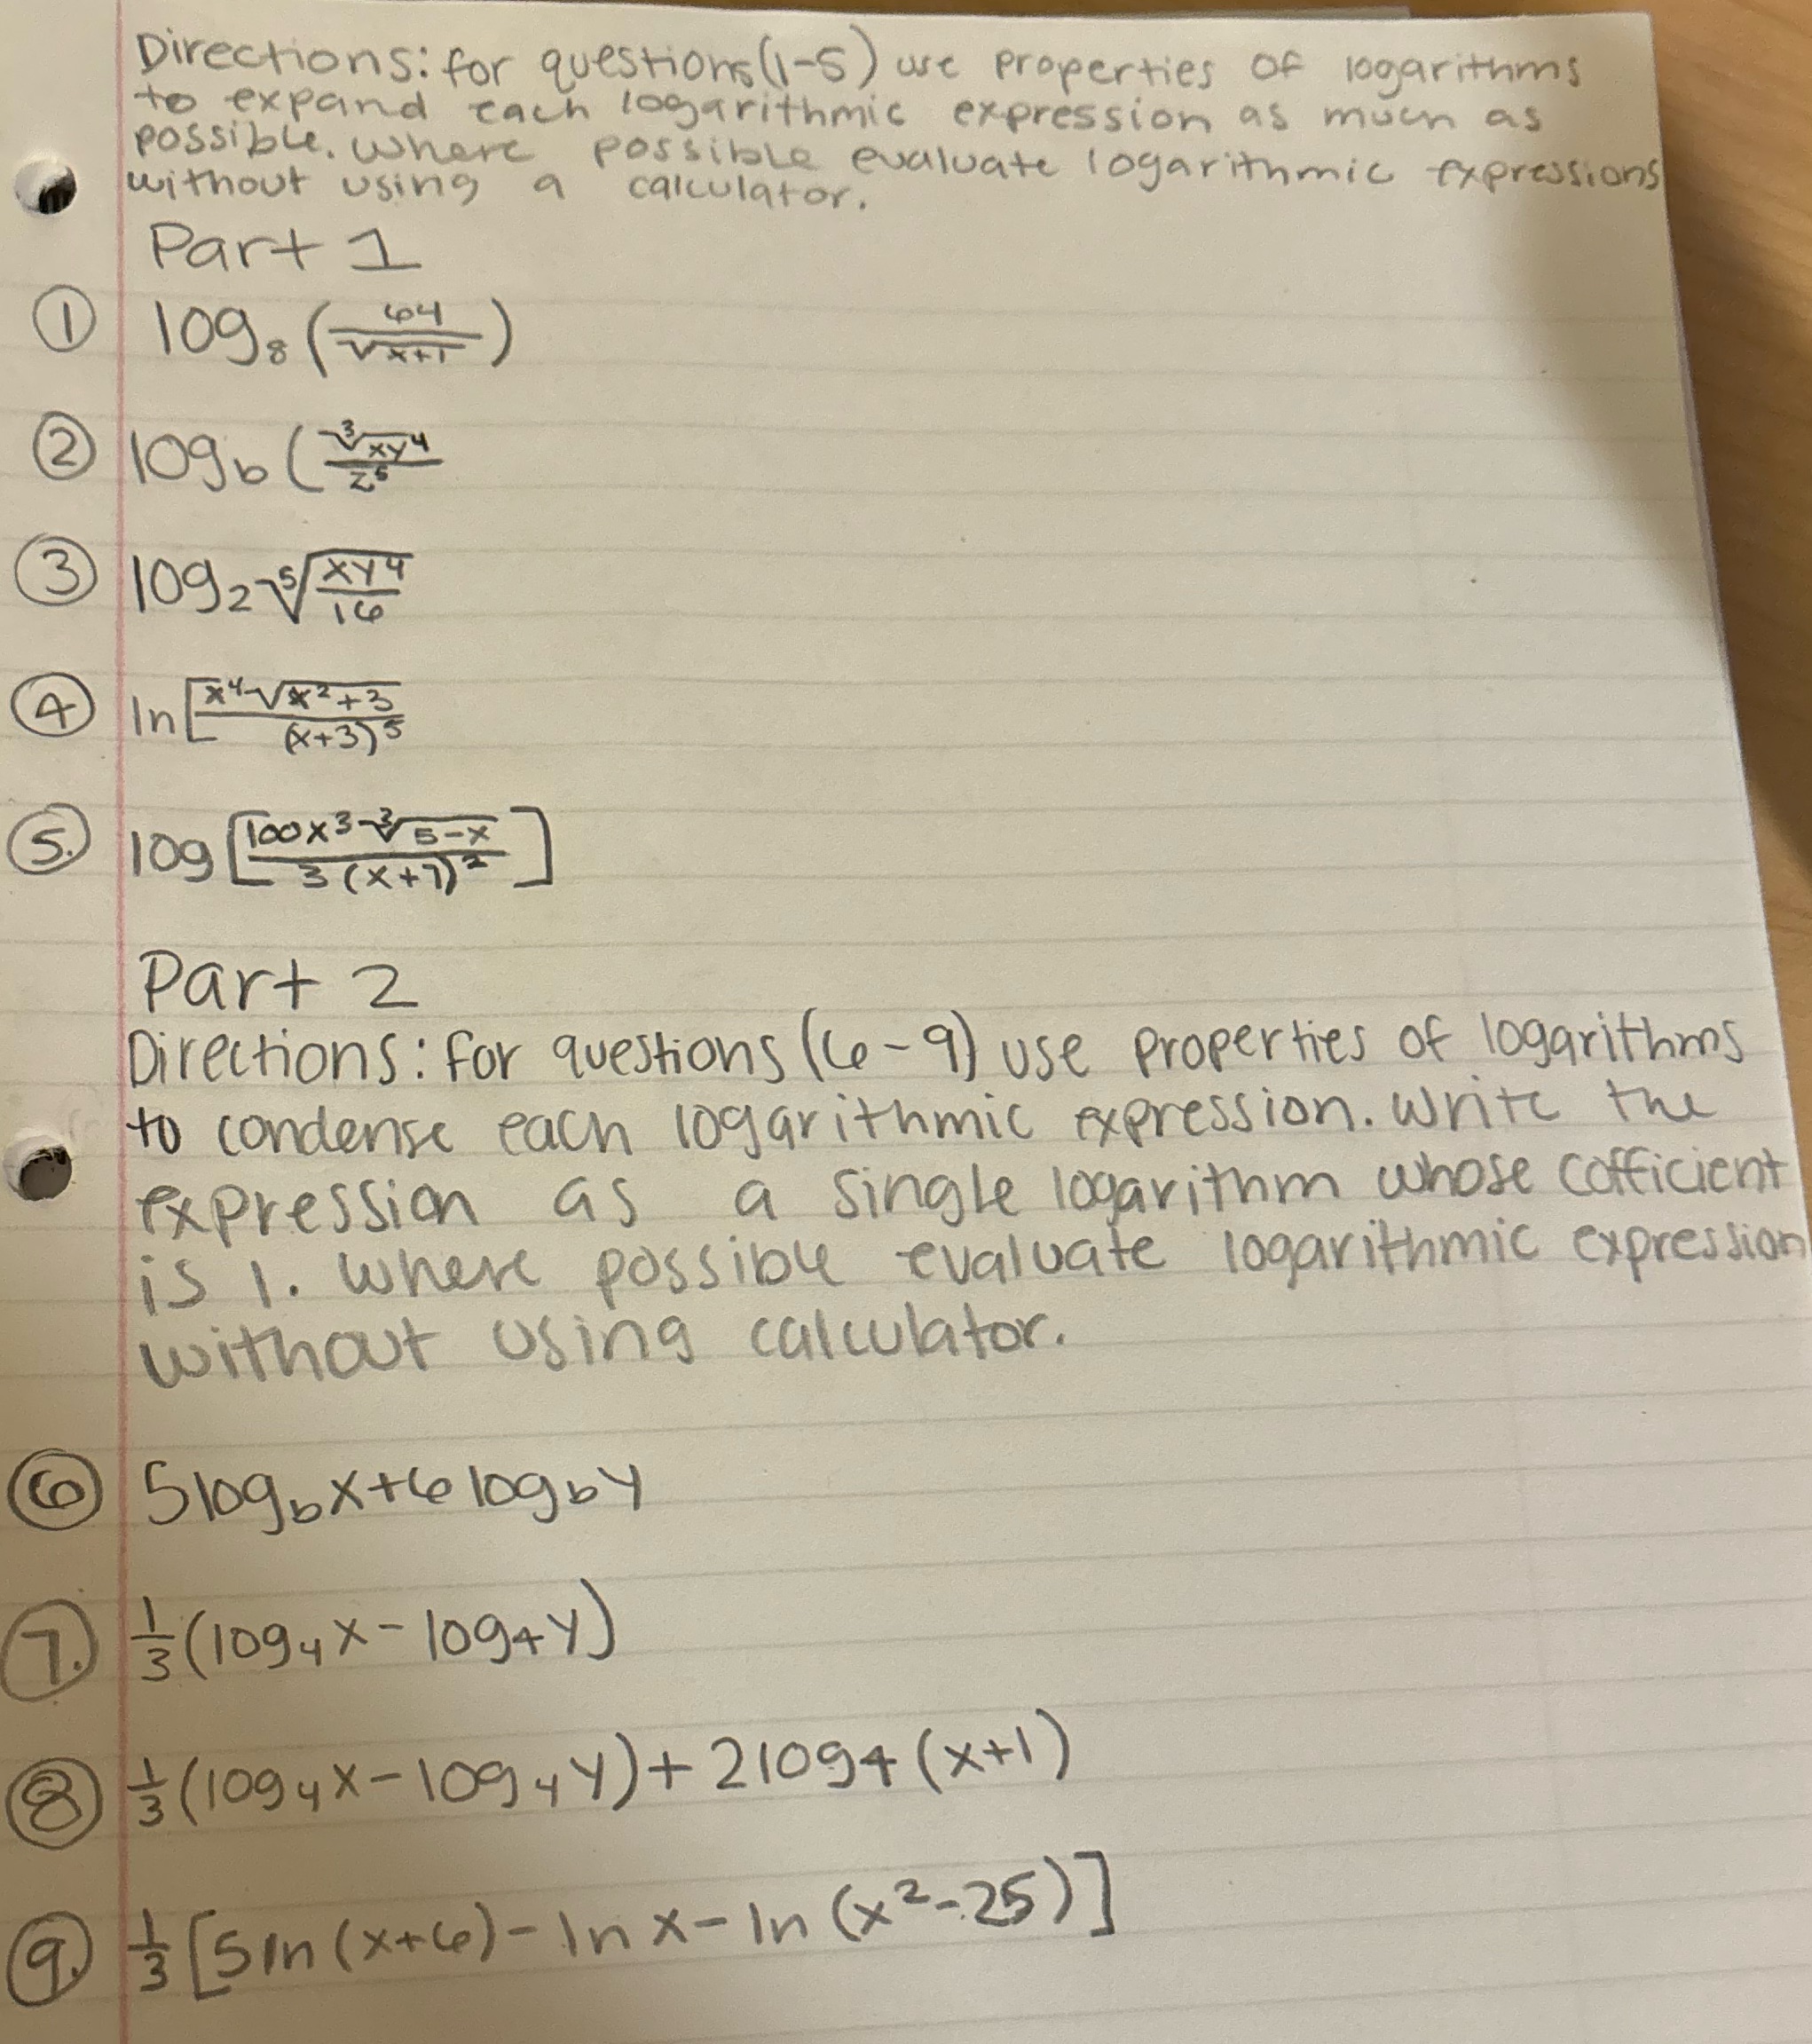 Directions: for questions (1-5) use properties of logarithms
to expand each logarithmic expression as much as
possible. Where possible evaluate logarithmic expressions
without using a calculator.
Part 1
① log₈ (64/√(x+1))
② log_b (∛(xy⁴)/z⁵
③ log₂ ⁵√(xy⁴/16)
④ ln [x⁴√(x²+3)/(x+3)⁵
⑤. log [100x³ ∛(5-x)/3(x+7)²]
Part 2
Directions: for questions (6-9) use properties of logarithms
to condense each logarithmic expression. Write the
expression as a single logarithm whose cofficient
is 1. Where possible evaluate logarithmic expression
without using calculator.
⑥ 5log_b x+6 log_b y
⑦. 1/3 (log₄ x - log₄ y)
⑧ 1/3 (log₄ x - log₄ y) + 2log₄ (x+1)
⑨. 1/3 [5ln (x+6) - ln x - ln (x²-25)]